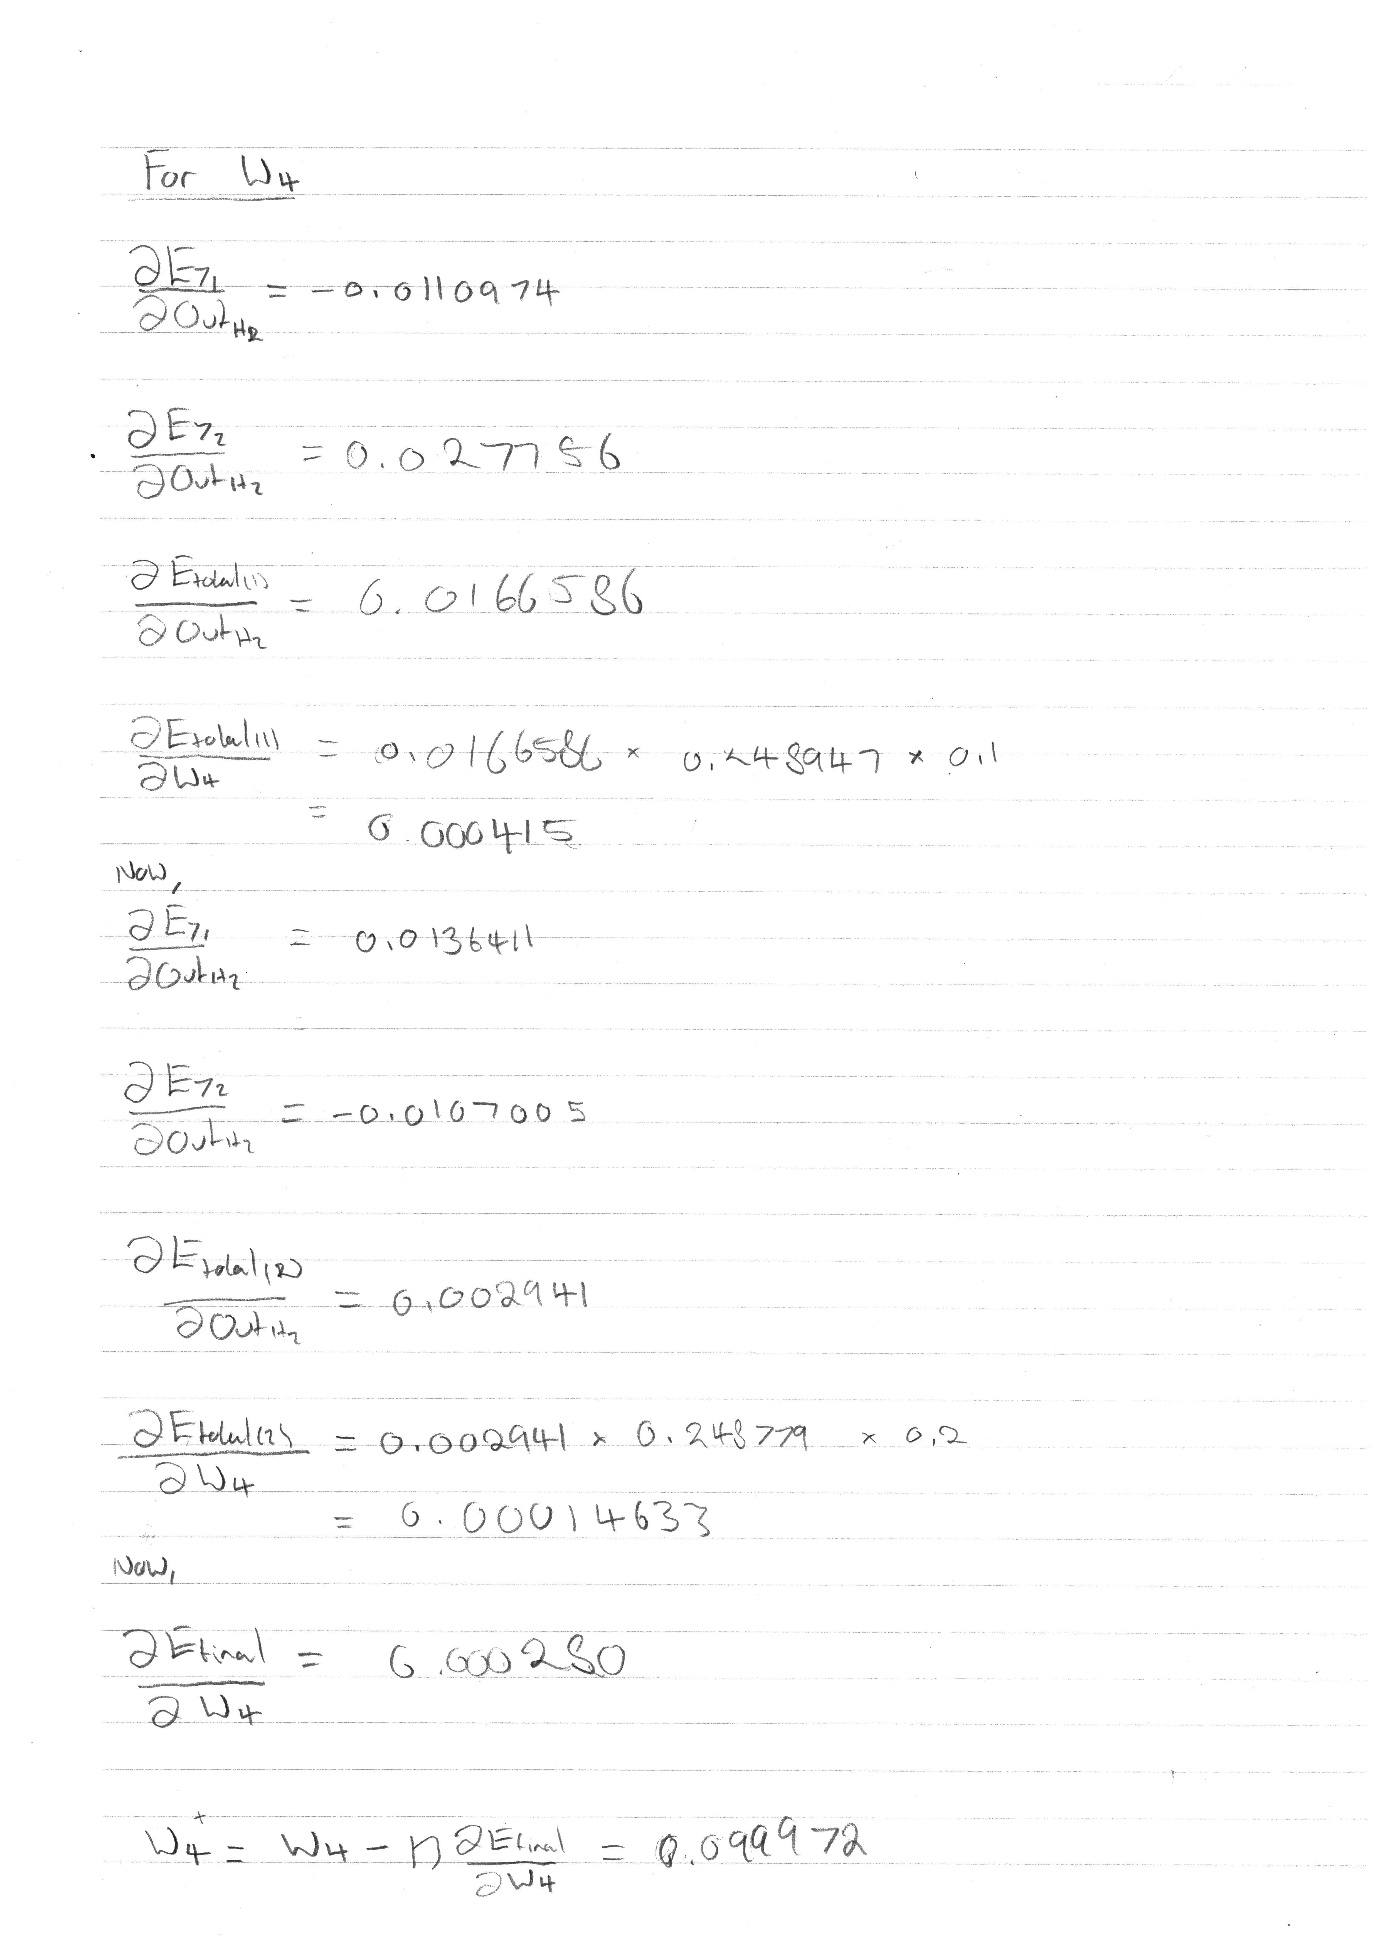 For W4
∂E71/∂OutH2 = -0.0110974
∂E72/∂OutH2 = 0.027756
∂Etotal(1)/∂OutH2 = 0.0166586
∂Etotal(1)/∂W4 = 0.0166586 × 0.248947 × 0.1
= 0.000415
Now,
∂E71/∂OutH2 = 0.0136411
∂E72/∂OutH2 = -0.0107005
∂Etotal(2)/∂OutH2 = 0.002941
∂Etotal(2)/∂W4 = 0.002941 × 0.248779 × 0.2
= 0.00014633
Now,
∂Efinal/∂W4 = 0.000280
W4+ = W4 - η ∂Efinal/∂W4 = 0.099972